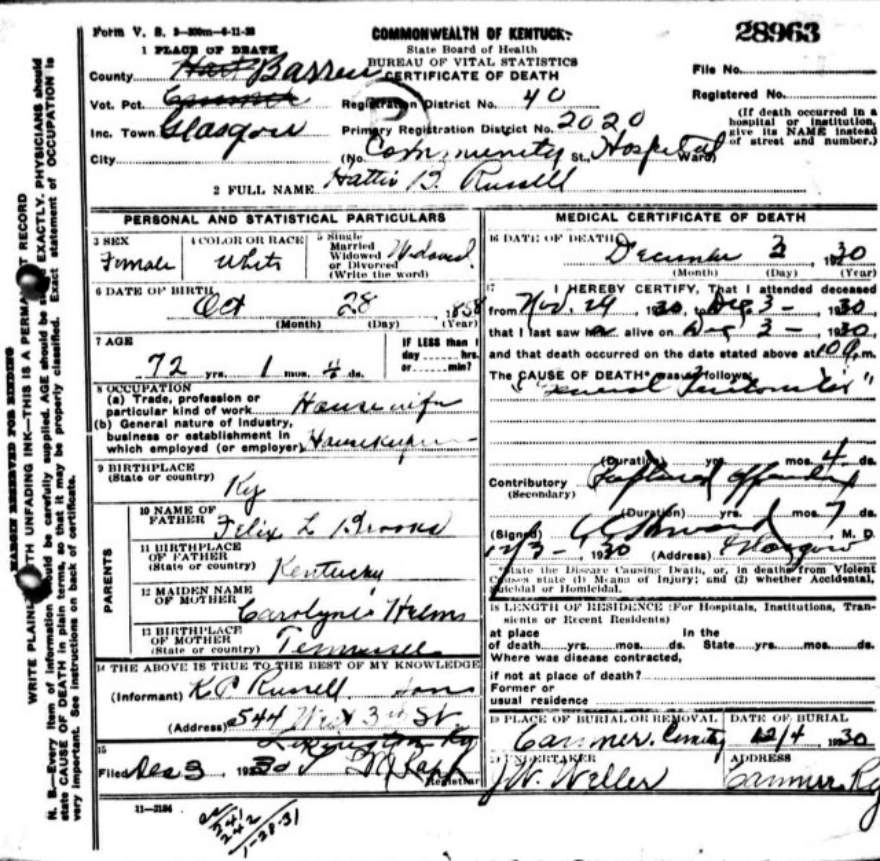 Form V. S.
COMMONWEALTH OF KENTUCKY
28963
State Board of Health
BUREAU OF VITAL STATISTICS
CERTIFICATE OF DEATH
1 PLACE OF DEATH
County Hart Barren
File No.
Vot. Pct.
Registration District No. 40
Registered No.
Inc. Town Glasgow
Primary Registration District No. 2020
(If death occurred in a hospital or institution, give its NAME instead of street and number.)
City
(No. Community St., Hospital Ward)
2 FULL NAME Hattie B. Russell
PERSONAL AND STATISTICAL PARTICULARS
3 SEX Female
4 COLOR OR RACE White
5 Single Married Widowed or Divorced (Write the word) Widowed
6 DATE OF BIRTH
Oct 28, 1858
(Month) (Day) (Year)
7 AGE
72 yrs. 1 mos. ds.
IF LESS than 1 day hrs. or min?
8 OCCUPATION
(a) Trade, profession or particular kind of work Housewife
(b) General nature of industry, business or establishment in which employed (or employer) Housekeeper
9 BIRTHPLACE
(State or country)
Ky
PARENTS
10 NAME OF FATHER
Felix L Brooks
11 BIRTHPLACE OF FATHER
(State or country) Kentucky
12 MAIDEN NAME OF MOTHER
Carolyne Helms
13 BIRTHPLACE OF MOTHER
(State or country) Tennessee
14 THE ABOVE IS TRUE TO THE BEST OF MY KNOWLEDGE
(Informant) K P Russell
(Address) 544 West 3rd St.
Lexington Ky
15
Filed Dec 3 1930
Registrar
11—3184
241
242
1-28-31
MEDICAL CERTIFICATE OF DEATH
16 DATE OF DEATH
December 3 1930
(Month) (Day) (Year)
17 I HEREBY CERTIFY, That I attended deceased
from Nov. 29, 1930, to Dec 3 - , 1930
that I last saw her alive on Dec 3 - , 1930
and that death occurred on the date stated above at 10 P.m.
The CAUSE OF DEATH* was as follows:
"General Peritonitis"
(Duration) yrs. mos. 4 ds.
Contributory Ruptured Appendix
(Secondary)
(Duration) yrs. mos. 7 ds.
(Signed) M. D.
12/3- 1930 (Address) Glasgow
*State the Disease Causing Death, or, in deaths from Violent Causes state (1) Means of Injury; and (2) whether Accidental, Suicidal or Homicidal.
18 LENGTH OF RESIDENCE (For Hospitals, Institutions, Transients or Recent Residents)
at place In the
of death yrs. mos. ds. State yrs. mos. ds.
Where was disease contracted,
if not at place of death?
Former or
usual residence
19 PLACE OF BURIAL OR REMOVAL
Canmer Cemetery
DATE OF BURIAL
12/4 1930
20 UNDERTAKER
J.W. Weller
ADDRESS
Canmer Ky
MARGIN RESERVED FOR BINDING
WRITE PLAINLY WITH UNFADING INK—THIS IS A PERMANENT RECORD
N. B.—Every item of information should be carefully supplied. AGE should be EXACTLY. PHYSICIANS should
state CAUSE OF DEATH in plain terms, so that it may be properly classified. Exact statement of OCCUPATION is
very important. See instructions on back of certificate.